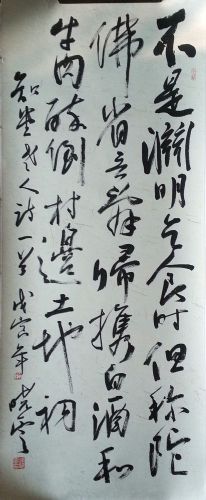 不是渊明乞食时但称陀
佛省言辞归携白酒和
牛肉醉倒村边土地祠
知堂老人诗一首 戊寅年 晓云